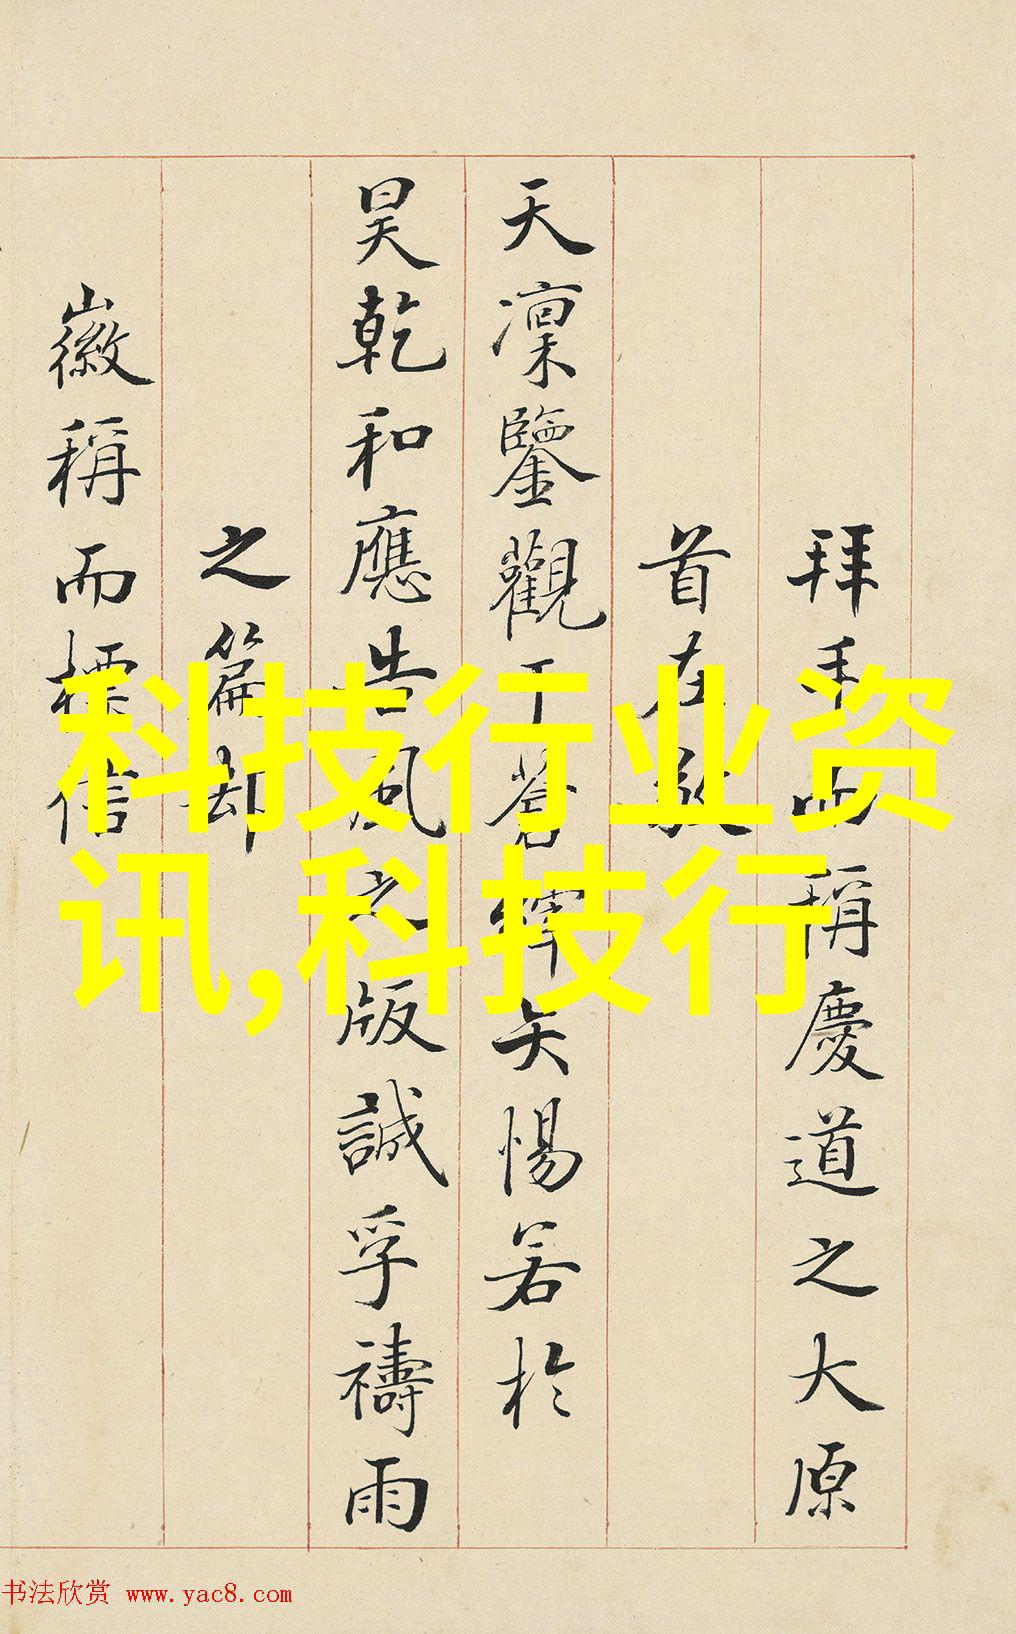 拜手而稱慶道之大原
首在敬
天凜鑒觀于蒼
矢惕若於
昊乾和應告風之版誠孚禱雨
之篇却
徽稱而標信
科技行业资
讯,科技行
书法欣赏 www.yac8.com